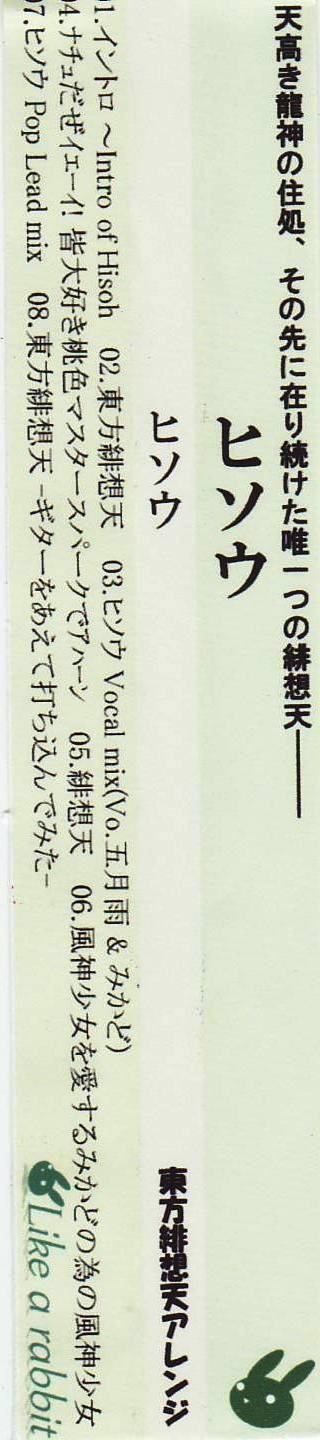 天高き龍神の住処、その先に在り続けた唯一つの緋想天――
ヒソウ
ヒソウ
東方緋想天アレンジ
01.イントロ ～Intro of Hisoh 02.東方緋想天 03.ヒソウ Vocal mix(Vo.五月雨 & みかど)
04.ナチュだぜイェーイ! 皆大好き桃色マスタースパークでアハーン 05.緋想天 06.風神少女を愛するみかどの為の風神少女
07.ヒソウ Pop Lead mix 08.東方緋想天 –ギターをあえて打ち込んでみた–
Like a rabbit